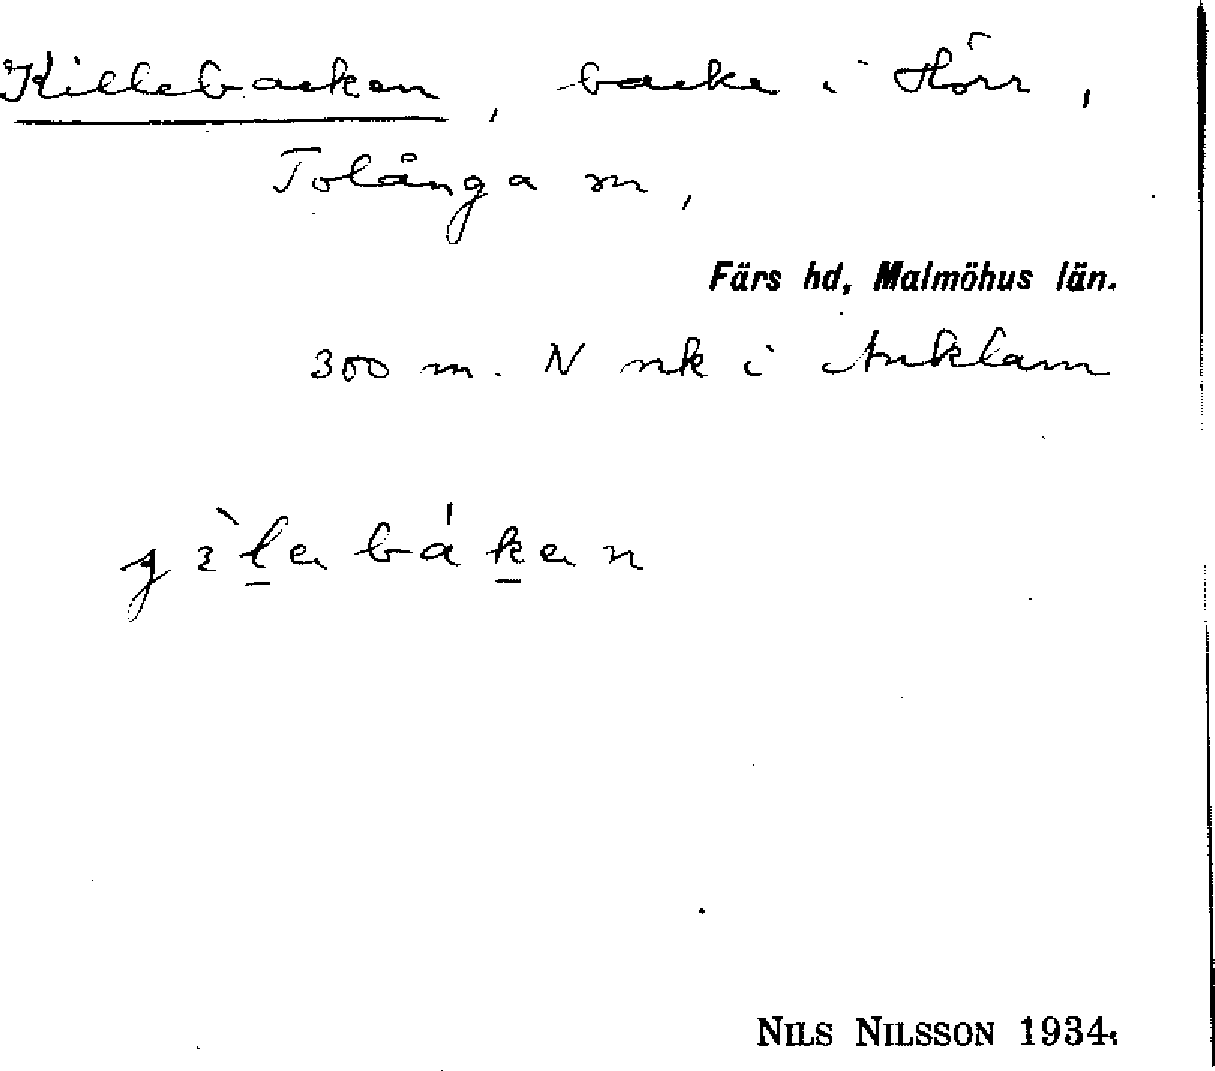 Killebacken, backe i Hörr,
Tolånga sn,
Färs hd, Malmöhus län.
300 m. N nk i Anklam
NILS NILSSON 1934.